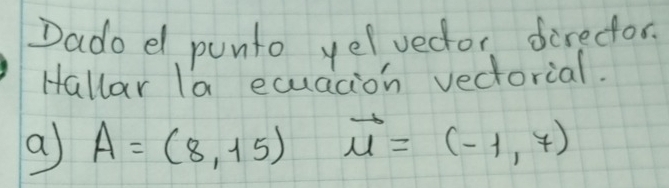 Dado el punto y el vector director.
Hallar la ecuación vectorial.
a) A = (8, 15) $\vec{u}$ = (-1, 7)